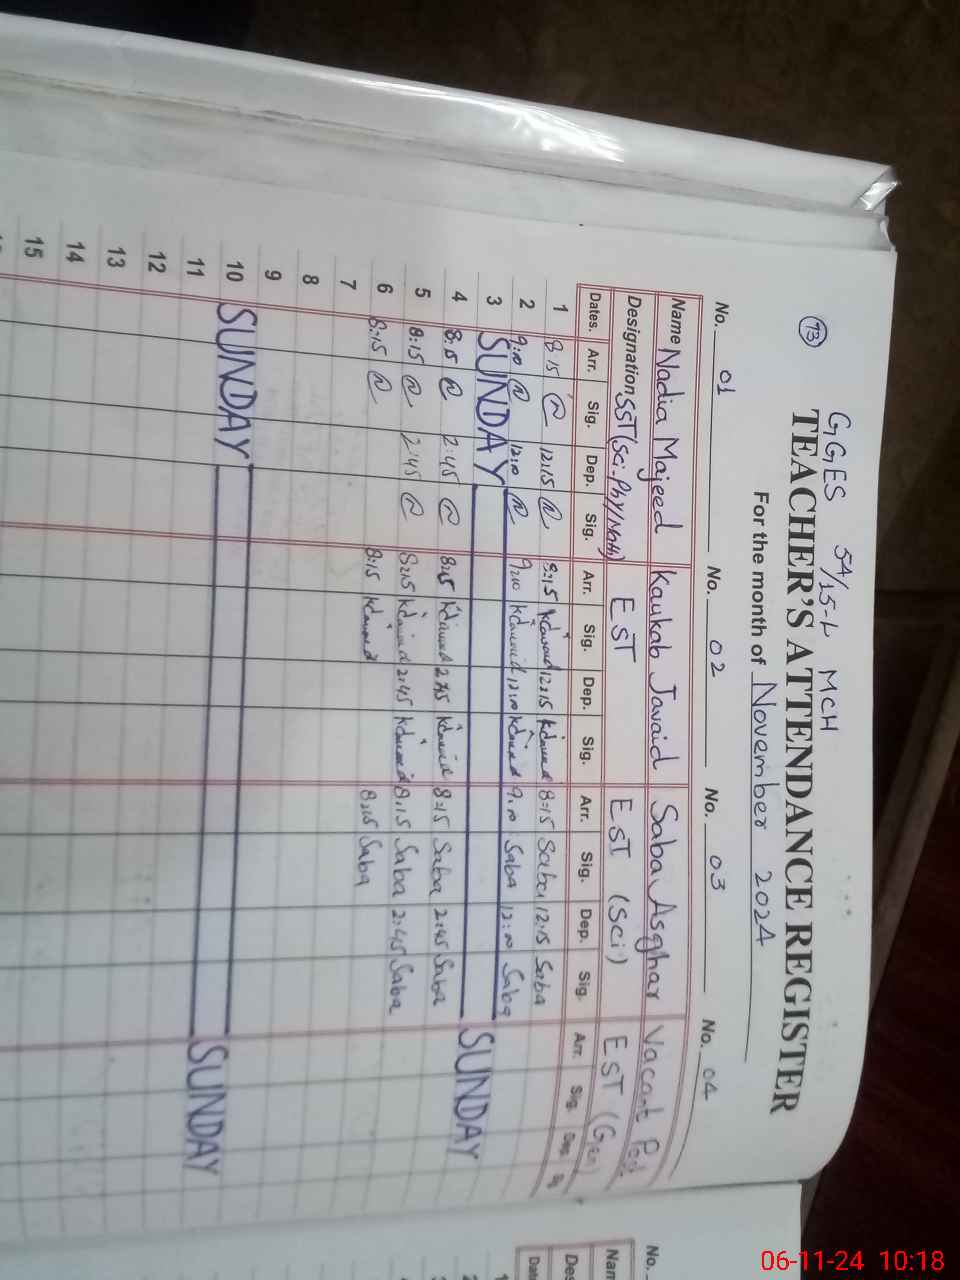 73
GGES 54/15-L MCH
TEACHER'S ATTENDANCE REGISTER
For the month of November 2024
No. 01 No. 02 No. 03 No. 04
Name Nadia Majeed Kaukab Javaid Saba Asghar Vacant Post
Designation SST(Sci-Phy/Math) EST EST (Sci) EST (Gen)
Dates. Arr. Sig. Dep. Sig. Arr. Sig. Dep. Sig. Arr. Sig. Dep. Sig. Arr. Sig. Dep.
1 8:15 12:15 8:15 KJavaid 12:15 KJavaid 8:15 Saba 12:15 Saba
2 9:00 12:00 9:00 KJavaid 12:00 KJavaid 9:00 Saba 12:00 Saba
3 SUNDAY SUNDAY
4 8:15 2:45 8:15 KJavaid 2:45 KJavaid 8:15 Saba 2:45 Saba
5 8:15 2:45 8:15 KJavaid 2:45 KJavaid 8:15 Saba 2:45 Saba
6 8:15 8:15 KJavaid 8:15 Saba
7
8
9
10 SUNDAY SUNDAY
11
12
13
14
15
No.
Nam
Des
Date
1
2
06-11-24 10:18